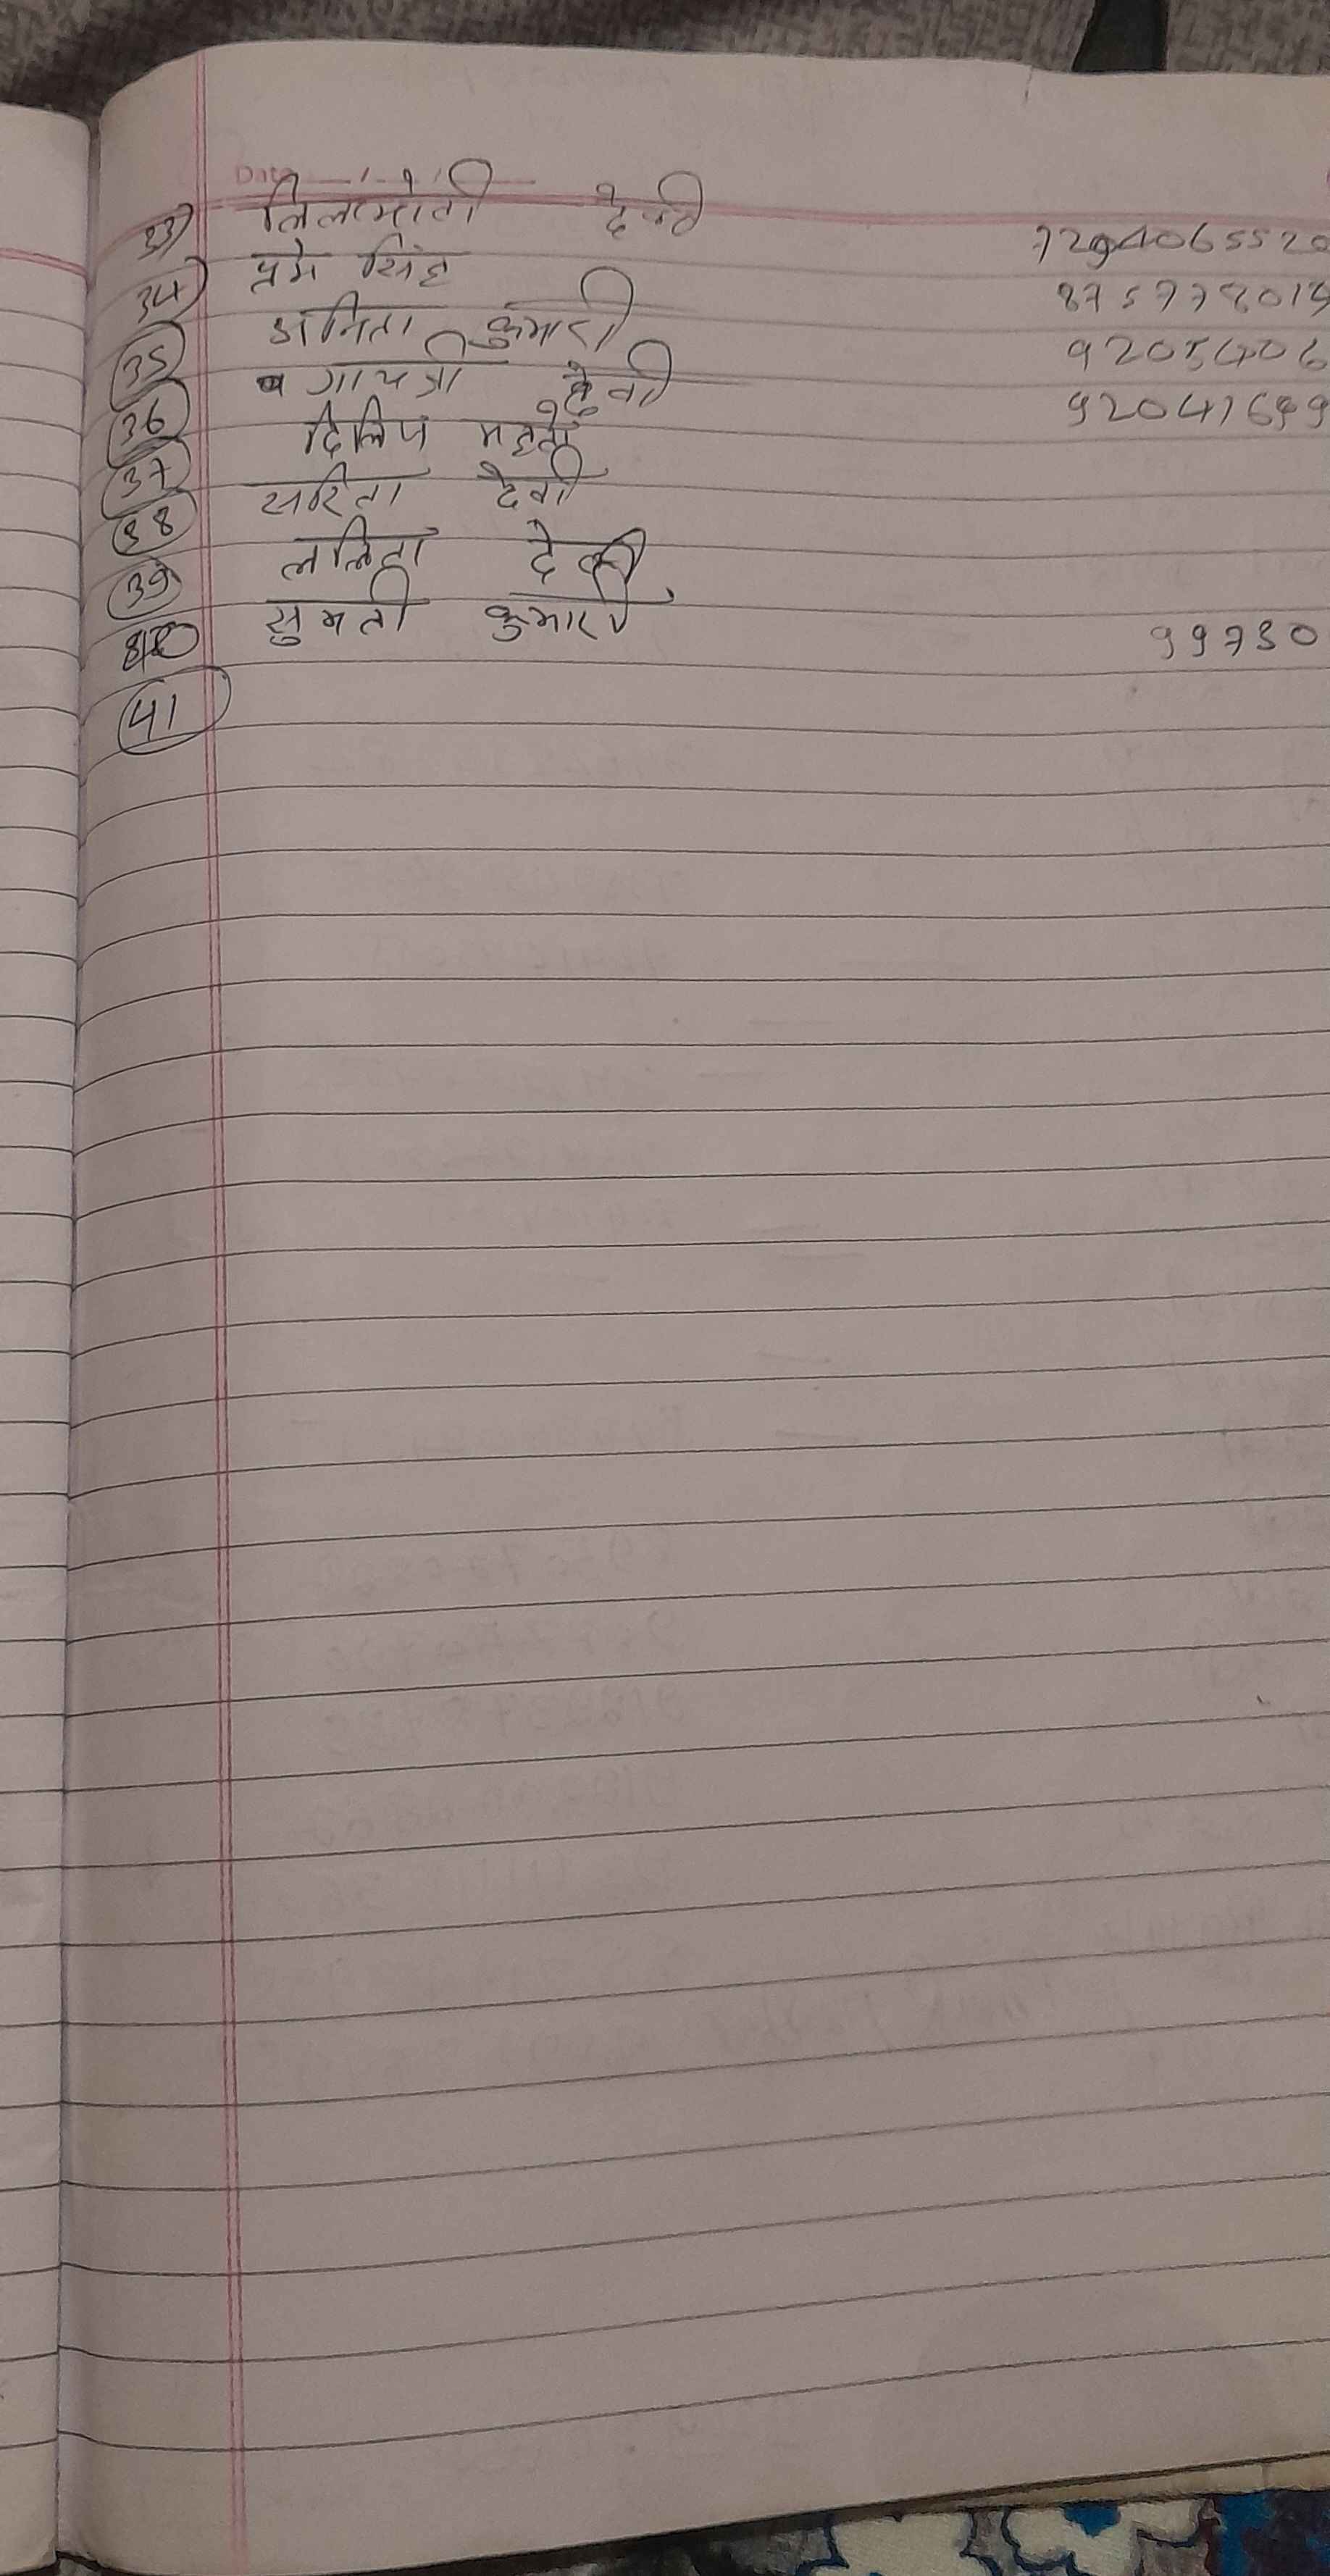 33) तिलमोती देवी 7294065520
34) प्रेम सिंह 875778013
35 अनिता कुमारी 9205406
36 गायत्री देवी 92041699
37 दिलिप महतो
38 सरिता देवी
39 ललिता देवी
40 सुमती कुमारी 99730
41